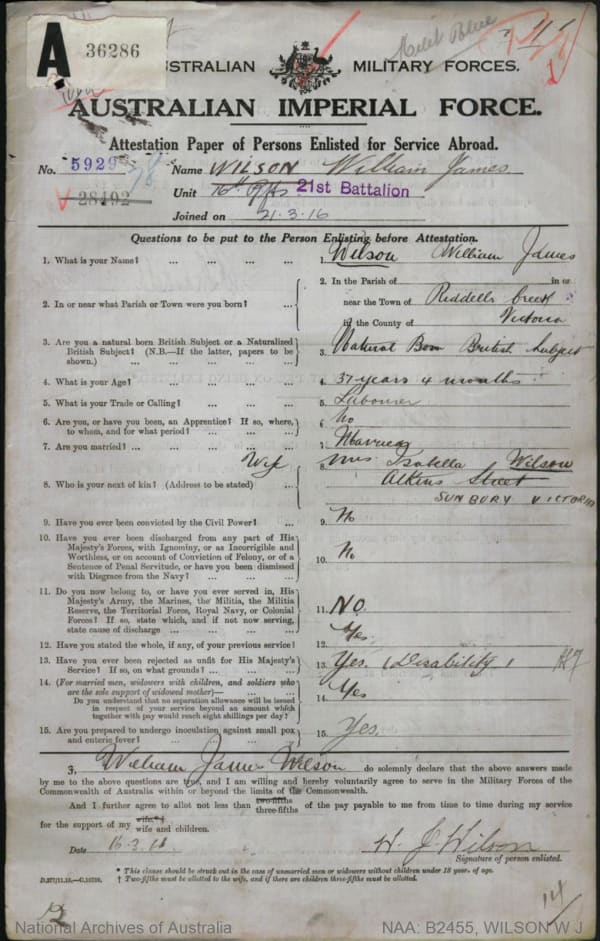 A 36286
AUSTRALIAN MILITARY FORCES.
AUSTRALIAN IMPERIAL FORCE.
Attestation Paper of Persons Enlisted for Service Abroad.
No. 5929 Name WILSON William James
28402
Unit 21st Battalion
Joined on 21.3.16
Questions to be put to the Person Enlisting before Attestation.
1. What is your Name? ... ... ... ... 1. Wilson William James
2. In or near what Parish or Town were you born? ... 2. In the Parish of in or
near the Town of Riddells Creek
in the County of Victoria
3. Are you a natural born British Subject or a Naturalized
British Subject? (N.B.—If the latter, papers to be
shown.) ... ... ... 3. Natural Born British Subject
4. What is your Age? ... ... ... ... 4. 37 years 4 months
5. What is your Trade or Calling? ... ... ... 5. Labourer
6. Are you, or have you been, an Apprentice? If so, where,
to whom, and for what period? ... ... ... 6. No
7. Are you married? ... ... ... ... 7. Married
Wife
8. Who is your next of kin? (Address to be stated) ... 8. Mrs Isabella Wilson
Atkins Street
SUNBURY VICTORIA
9. Have you ever been convicted by the Civil Power? ... 9. No
10. Have you ever been discharged from any part of His
Majesty's Forces, with Ignominy, or as Incorrigible and
Worthless, or on account of Conviction of Felony, or of a
Sentence of Penal Servitude, or have you been dismissed
with Disgrace from the Navy? ... ... ... 10. No
11. Do you now belong to, or have you ever served in, His
Majesty's Army, the Marines, the Militia, the Militia
Reserve, the Territorial Force, Royal Navy, or Colonial
Forces? If so, state which, and if not now serving,
state cause of discharge ... ... ... 11. NO.
12. Have you stated the whole, if any, of your previous service? 12. Yes
13. Have you ever been rejected as unfit for His Majesty's
Service? If so, on what grounds? ... ... ... 13. Yes. (Disability)
14. (For married men, widowers with children, and soldiers who
are the sole support of widowed mother)—
Do you understand that no separation allowance will be issued
in respect of your service beyond an amount which
together with pay would reach eight shillings per day? 14. Yes
15. Are you prepared to undergo inoculation against small pox
and enteric fever? ... ... ... 15. Yes.
I, William James Wilson do solemnly declare that the above answers made
by me to the above questions are true, and I am willing and hereby voluntarily agree to serve in the Military Forces of the
Commonwealth of Australia within or beyond the limits of the Commonwealth.
And I further agree to allot not less than two-fifths three-fifths of the pay payable to me from time to time during my service
for the support of my wife.*† wife and children.
Date 16.3.16 W. J. Wilson
Signature of person enlisted.
* This clause should be struck out in the case of unmarried men or widowers without children under 18 years of age.
† Two-fifths must be allotted to the wife, and if there are children three-fifths must be allotted.
14
National Archives of Australia NAA: B2455, WILSON W J